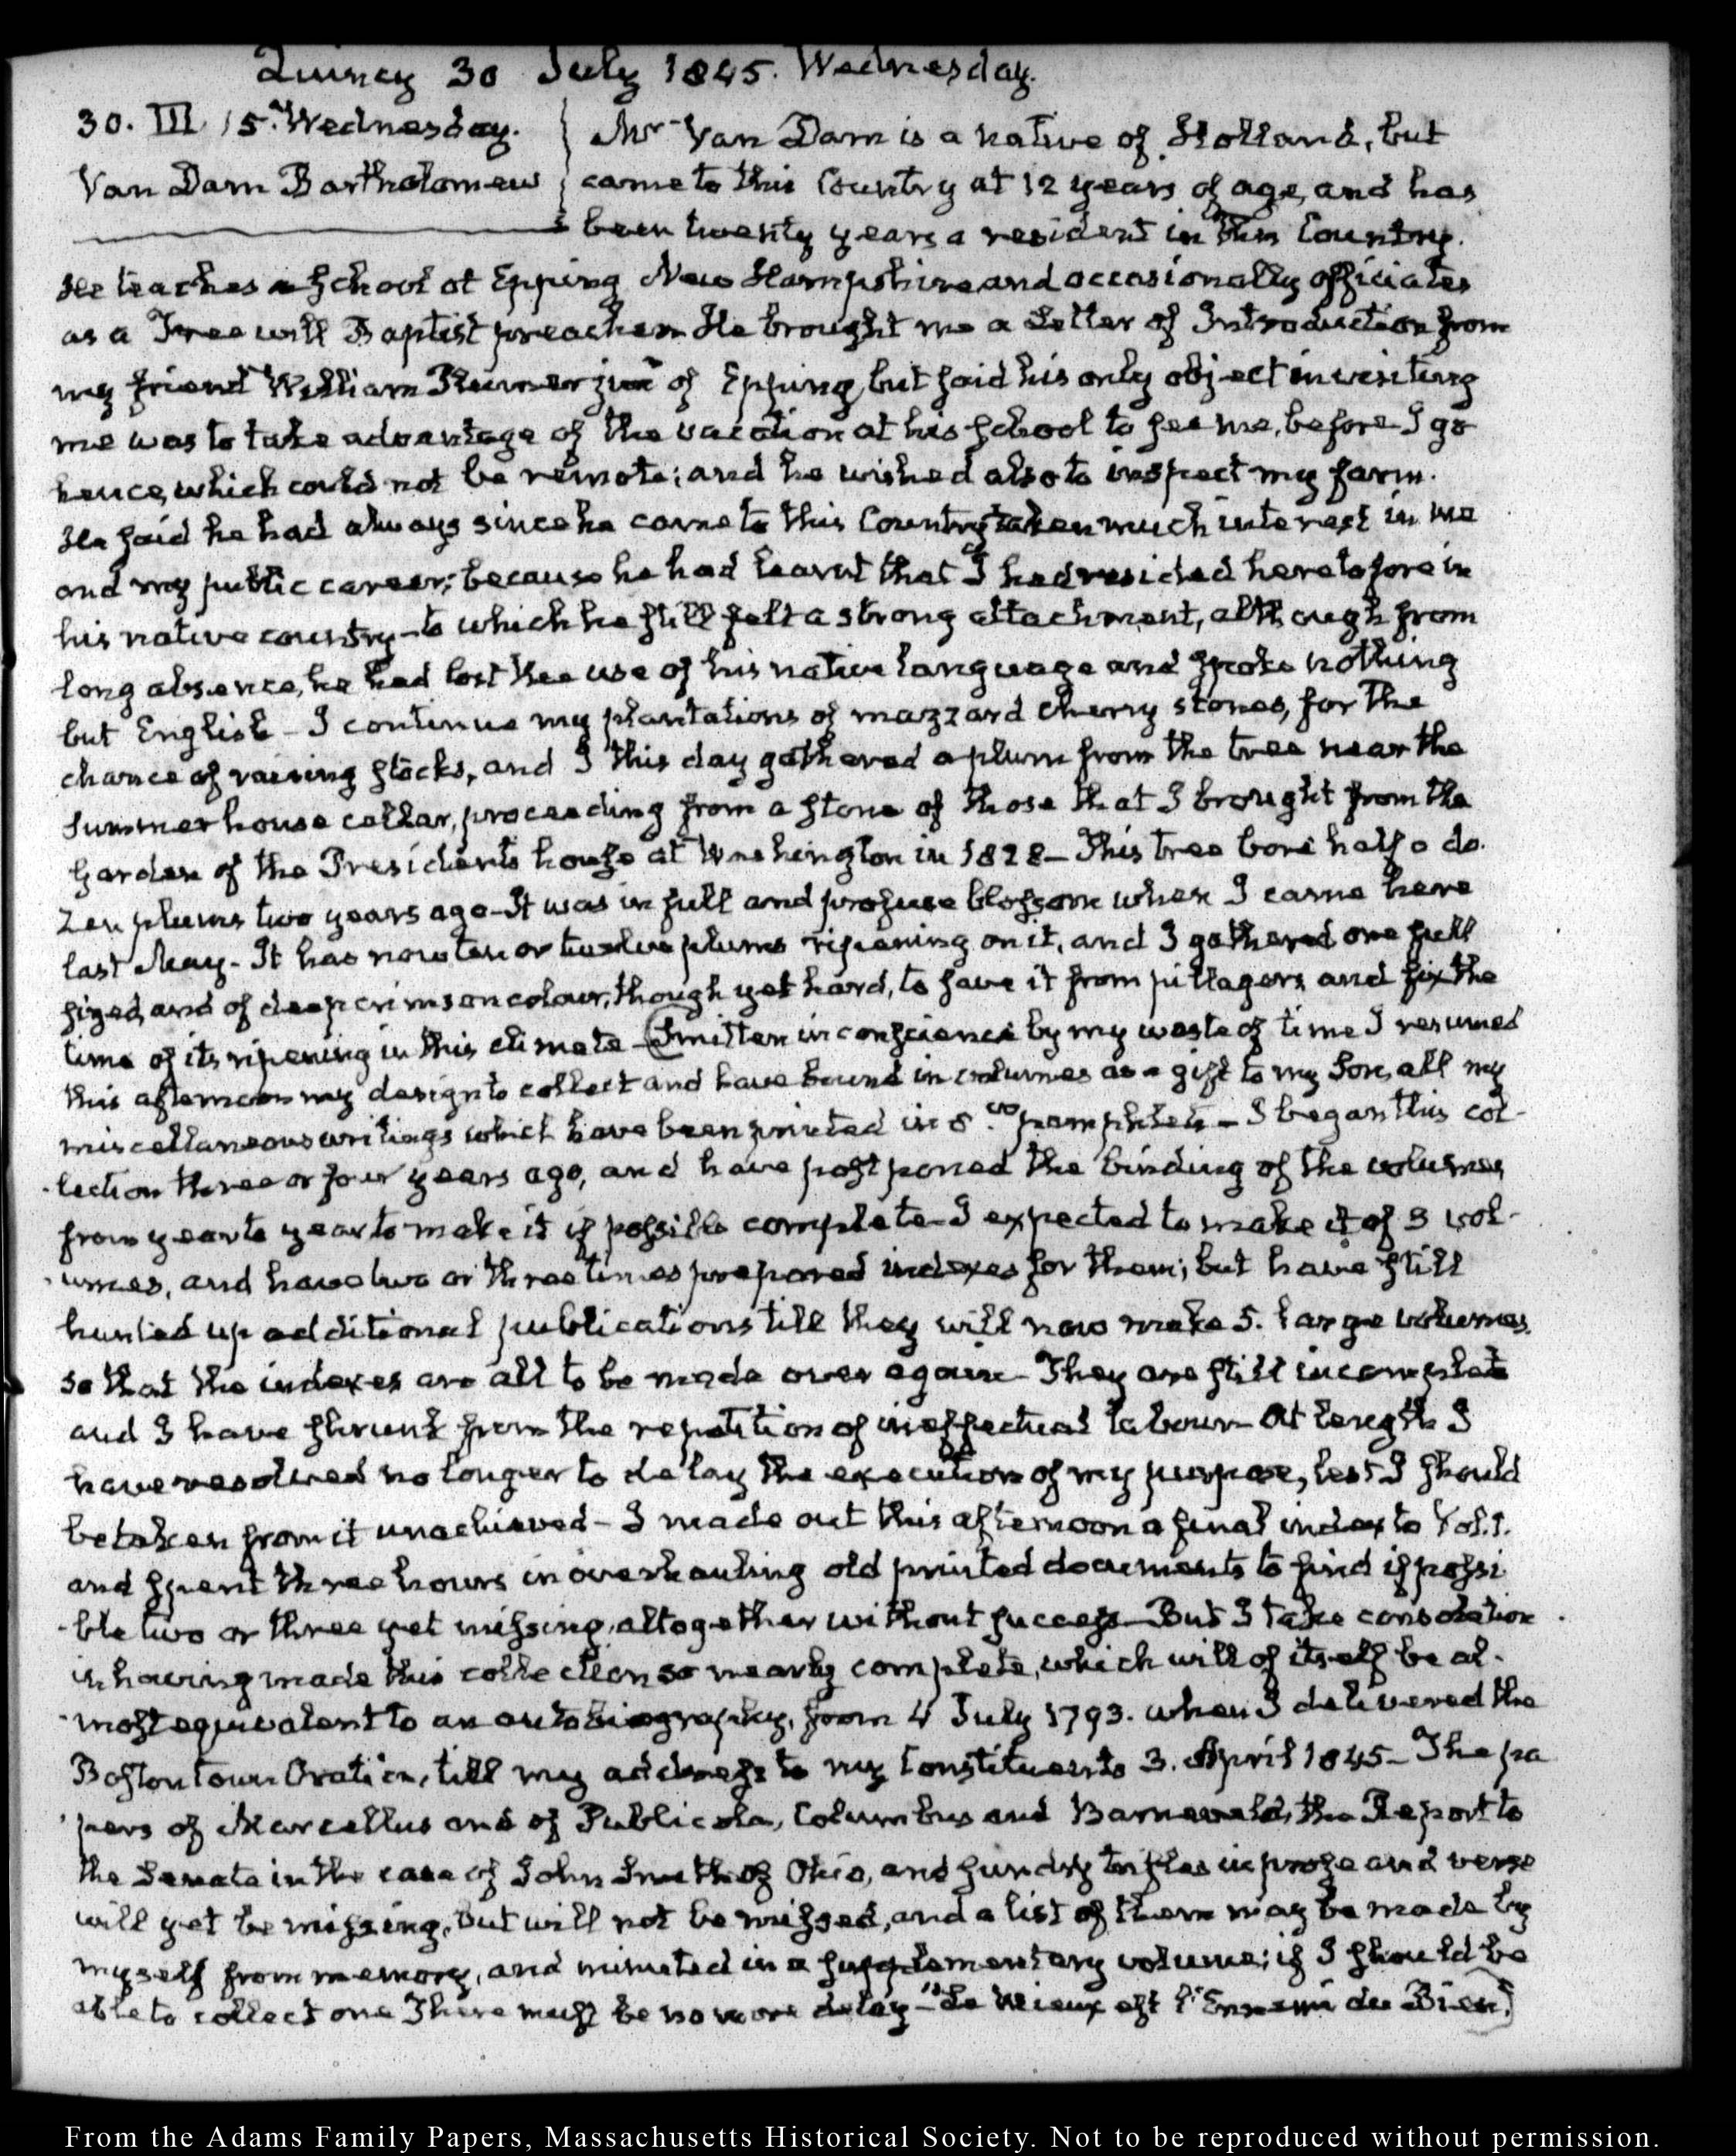 Quincy 30 July 1845. Wednesday.
30. III. 15. Wednesday.
Van Dam Bartholomew
Mr Van Dam is a native of Holland, but
came to this Country at 12 years of age, and has
been twenty years a resident in this Country.
He teaches a School at Epping New Hampshire and occasionally officiates
as a Free will Baptist preacher. He brought me a Letter of Introduction from
my friend William Plumer junr of Epping, but said his only object in visiting
me was to take advantage of the vacation at his school to see me, before I go
hence, which could not be remote; and he wished also to inspect my farm.
He said he had always since he came to this Country taken much interest in me
and my public career; because he had learnt that I had resided heretofore in
his native country—to which he still felt a strong attachment, although from
long absence, he had lost the use of his native language and spoke nothing
but English – I continue my plantations of mazzard cherry stones, for the
chance of raising stocks, and I this day gathered a plum from the tree near the
Summer house cellar, proceeding from a stone of those that I brought from the
garden of the Presidents house at Washington in 1828 – This tree bore half a do-
zen plums two years ago – It was in full and profuse blossom when I came here
last May – It has now ten or twelve plums ripening on it, and I gathered one full
sized, and of deep crimson colour, though yet hard, to save it from pillagers and fix the
time of its ripening in this climate – Smitten in conscience by my waste of time I resumed
this afternoon my design to collect and have bound in volumes as a gift to my Son, all my
miscellaneous writings which have been printed in 8.vo pamphlets – I began this col-
lection three or four years ago, and have postponed the binding of the volumes
from year to year to make it if possible complete – I expected to make it of 3 vol-
umes, and have two or three times prepared indexes for them; but have still
hunted up additional publications till they will now make 5. large volumes,
so that the indexes are all to be made over again – They are still incomplete
and I have shrunk from the repetition of ineffectual labour – At length I
have resolved no longer to delay the execution of my purpose, lest I should
be taken from it unachieved – I made out this afternoon a final index to Vol. 1.
and spent three hours in overhauling old printed documents to find if possi-
ble two or three yet missing, altogether without success – But I take consolation
in having made this collection so nearly complete, which will of itself be al-
most equivalent to an autobiography, from 4 July 1793. when I delivered the
Boston town Oration, till my address to my Constituents 3. April 1845 – The pa
pers of Marcellus and of Publicola, Columbus and Barneveld, the Report to
the Senate in the case of John Smith of Ohio, and sundry trifles in prose and verse
will yet be missing, but will not be missed, and a list of them may be made by
myself from memory, and minuted in a supplementary volume; if I should be
able to collect one There must be no more delay – "Le Mieux est l'Ennemi du Bien"
From the Adams Family Papers, Massachusetts Historical Society. Not to be reproduced without permission.